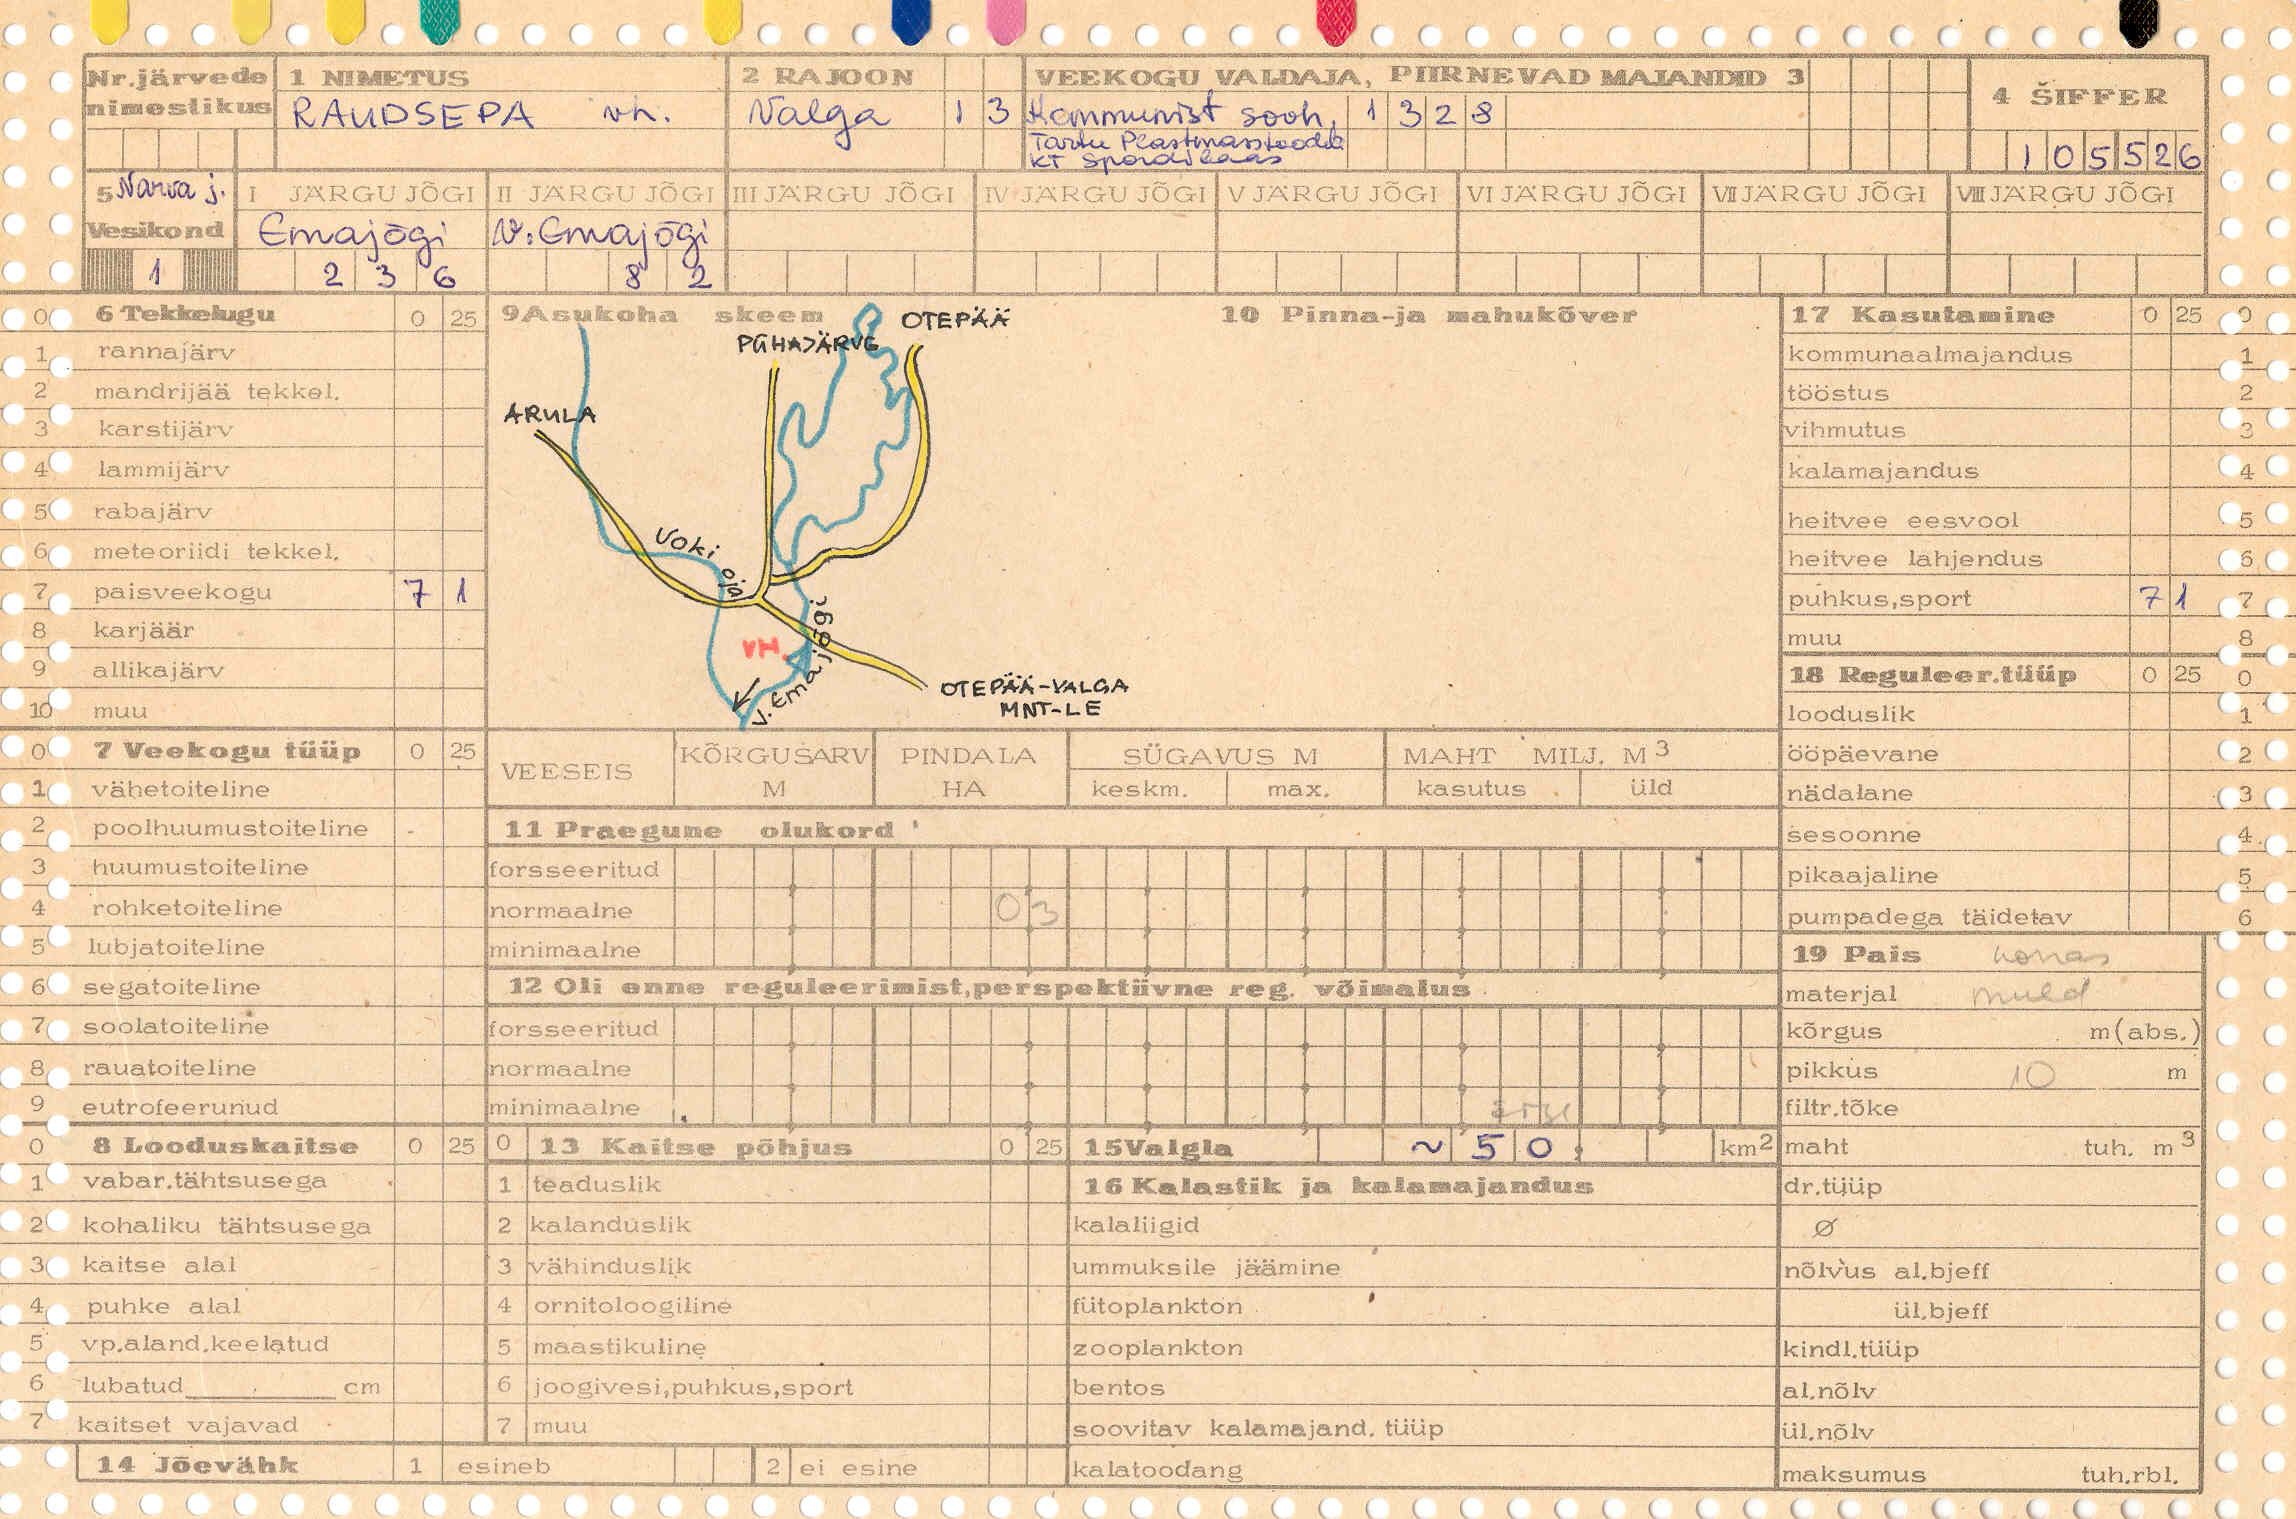 Nr.järvede nimestikus
1 NIMETUS
RAUDSEPA vh.
2 RAJOON
Valga 1 3
VEEKOGU VALDAJA, PIIRNEVAD MAJANDID 3
Kommunist sovh. 1 3 2 8
Tartu Plastmasstoodete
KT Spordibaas
4 ŠIFFER
1 0 5 5 2 6
5 Narva j.
Vesikond
1
I JÄRGU JÕGI
Emajõgi
2 3 6
II JÄRGU JÕGI
V. Emajõgi
8 2
III JÄRGU JÕGI
IV JÄRGU JÕGI
V JÄRGU JÕGI
VI JÄRGU JÕGI
VII JÄRGU JÕGI
VIII JÄRGU JÕGI
0 6 Tekkelugu 0 25
1 rannajärv
2 mandrijää tekkel.
3 karstijärv
4 lammijärv
5 rabajärv
6 meteoriidi tekkel.
7 paisveekogu 7 1
8 karjäär
9 allikajärv
10 muu
0 7 Veekogu tüüp 0 25
1 vähetoiteline
2 poolhuumustoiteline
3 huumustoiteline
4 rohketoiteline
5 lubjatoiteline
6 segatoiteline
7 soolatoiteline
8 rauatoiteline
9 eutrofeerunud
0 8 Looduskaitse 0 25
1 vabar.tähtsusega
2 kohaliku tähtsusega
3 kaitse alal
4 puhke alal
5 vp.aland.keelatud
6 lubatud cm
7 kaitset vajavad
14 Jõevähk 1 esineb 2 ei esine
9 Asukoha skeem
10 Pinna-ja mahukõver
OTEPÄÄ
PÜHAJÄRVE
ARULA
Voki oja
VH.
V. Emajõgi
OTEPÄÄ-VALGA
MNT-LE
VEESEIS
KÕRGUSARV M
PINDALA HA
SÜGAVUS M
keskm. max.
MAHT MILJ. M3
kasutus üld
11 Praegune olukord
forsseeritud
normaalne 0 3
minimaalne
12 Oli enne reguleerimist,perspektiivne reg. võimalus
forsseeritud
normaalne
minimaalne
0 13 Kaitse põhjus 0 25
1 teaduslik
2 kalanduslik
3 vähinduslik
4 ornitoloogiline
5 maastikuline
6 joogivesi,puhkus,sport
7 muu
15 Valgla ~ 5 0 km2
16 Kalastik ja kalamajandus
kalaliigid
ummuksile jäämine
fütoplankton
zooplankton
bentos
soovitav kalamajand. tüüp
kalatoodang
17 Kasutamine 0 25 0
kommunaalmajandus 1
tööstus 2
vihmutus 3
kalamajandus 4
heitvee eesvool 5
heitvee lahjendus 6
puhkus,sport 7 1 7
muu 8
18 Reguleer.tüüp 0 25 0
looduslik 1
ööpäevane 2
nädalane 3
sesoonne 4
pikaajaline 5
pumpadega täidetav 6
19 Pais korras
materjal muld
kõrgus m(abs.)
pikkus 10 m
filtr.tõke
maht tuh. m3
dr.tüüp
Ø
nõlvus al.bjeff
ül.bjeff
kindl.tüüp
al.nõlv
ül.nõlv
maksumus tuh.rbl.